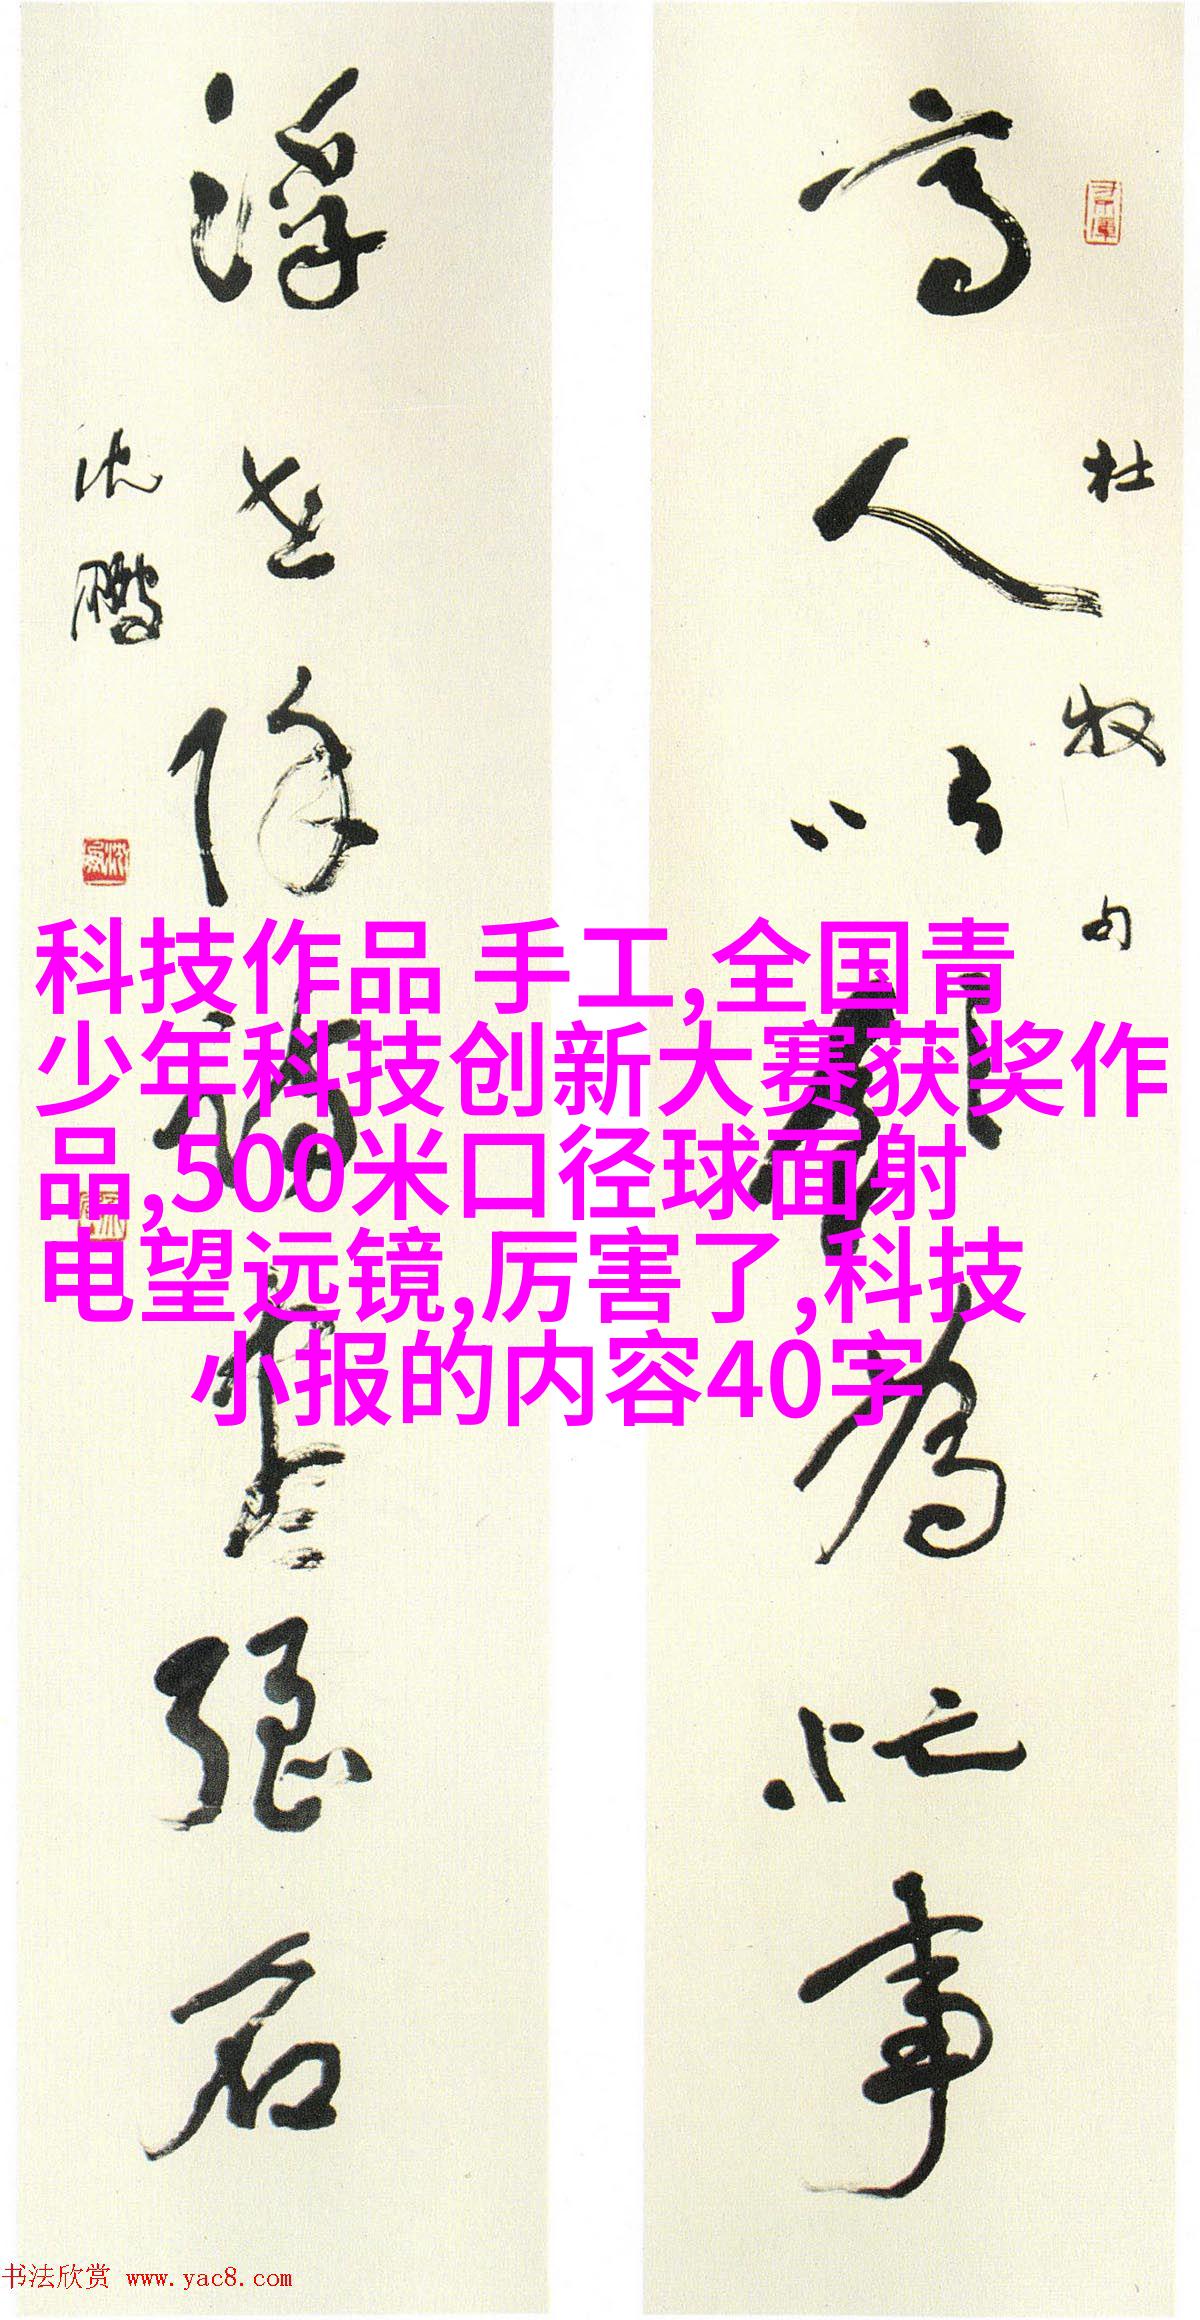 科技作品 手工,全国青
少年科技创新大赛获奖作
品,500米口径球面射
电望远镜,厉害了,科技
小报的内容40字
杜牧句
高人以飲為忙事
浮世除詩盡強名
沈鹏
书法欣赏 www.yac8.com